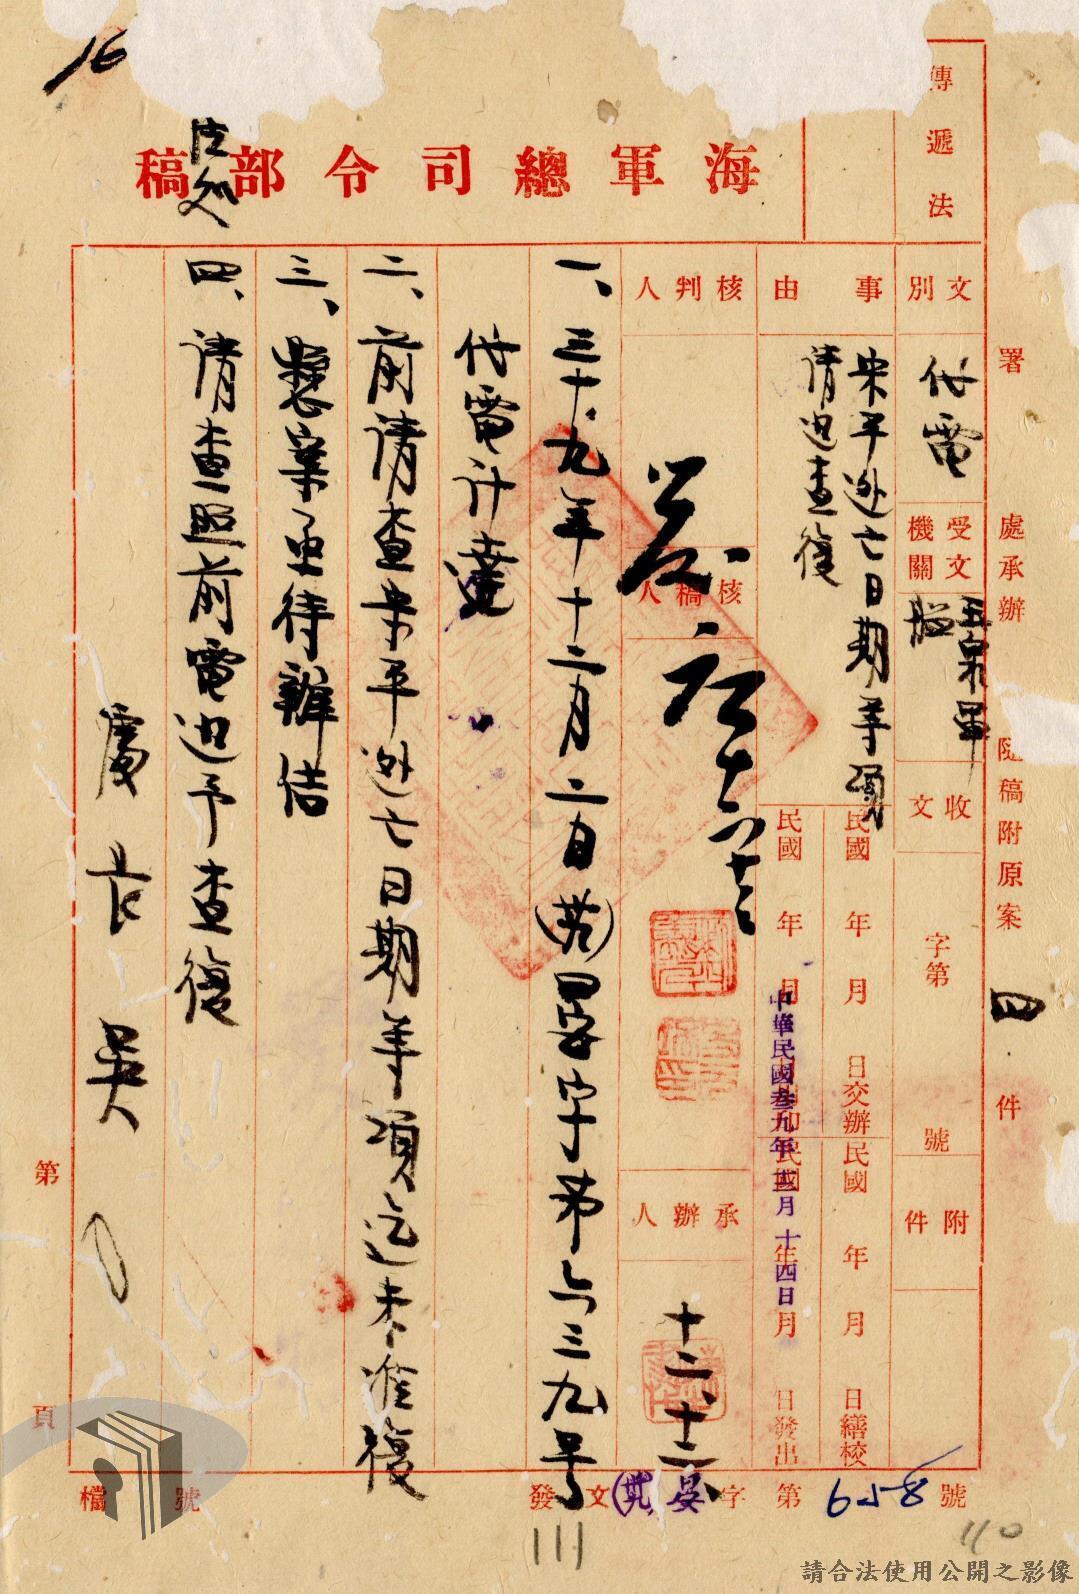 16
海軍總司令部稿
法處
傳遞法
署 處承辦 隨稿附原案 四 件
文別
代電
受文機關
收文
字第 號
附件
事由
宋平逃亡日期等項
請迅查復
民國 年 月 日交辦
民國 年 月 日繕校
民國 年 月 日
民國 年 月 日發出
中華民國叁九年十二月十四日
核判人
核稿人
承辦人
十二、十二
一、三十九年十二月二日(芳)晏字第六三九号
代電計達
二、前請查宋平逃亡日期等項迄未准復
三、懸案亟待辦结
四、請查照前電迅予查復
處長 吳
第 頁
檔號
發文 晏字第 658 號
111
110
請合法使用公開之影像